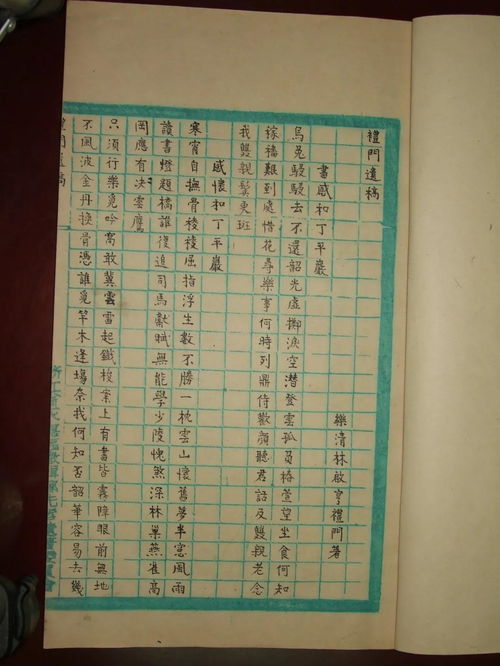 禮門遺稿
樂清林啟亨禮門著
書感和丁平巖
烏兔駸駸去不還韶光虛擲淚空潸登雲孤負椿萱望坐食何知
稼穡艱到處惜花尋樂事何時列鼎侍歡顏聽君話及雙親老念
我雙親鬢更班
感懷和丁平巖
寒宵自撫骨稜稜屈指浮生數不勝一枕雲山懷舊夢半窻風雨
讀書燈題橋誰復追司馬獻賦無能學少陵愧煞深林巢燕雀高
岡應有决雲鷹
只須行樂覓吟窩敢冀雲雷起鐵梭案上有書皆霧障眼前無地
不風波金丹換骨憑誰覓竿木逢場奈我何知否韶華容易去幾
禮門遺稿